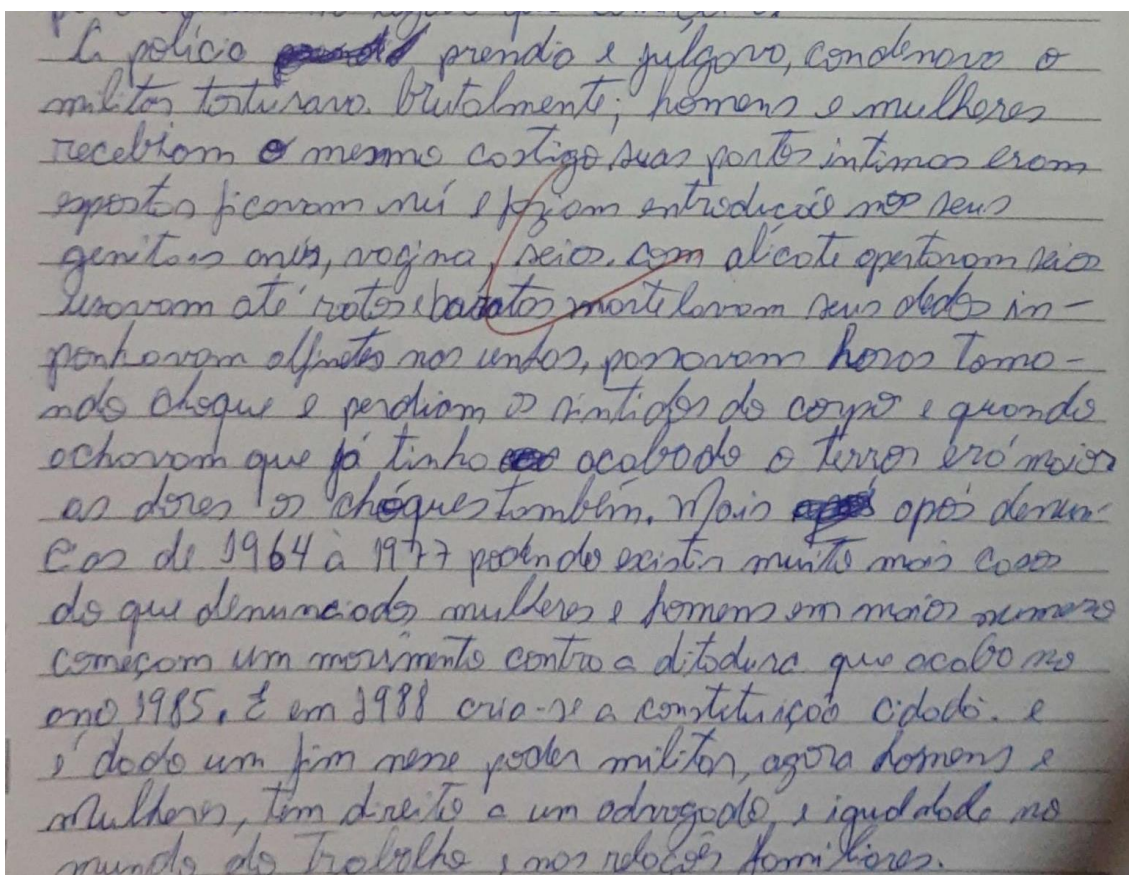 A polícia prendia e julgava, condenava o
militar torturava brutalmente; homens e mulheres
recebiam o mesmo castigo suas partes intimas eram
expostas ficavam nú e faziam entroducão nos seus
genitais anús, vagina, seios. com alicate apertavam seios
usavam até ratos e baratas martelavam seus dedos in-
ponhavam alfinetes nas unhas, passavam horas toma-
ndo choque e perdiam os sintidos do corpo e quando
achavam que já tinha acabado o terror erá maior
as dores os chóques também. Mais após denun-
cas de 1964 à 1977 podendo existir muito mais casos
do que denunciados mulheres e homens em maior numero
começam um movimento contra a ditadura que acaba no
ano 1985. E em 1988 cria-se a constituição cidadã. e
é dado um fim nesse poder militar, agora homens e
mulheres, tem direito a um advogado, e igualdade no
mundo do trabalho e nas relações familiares.